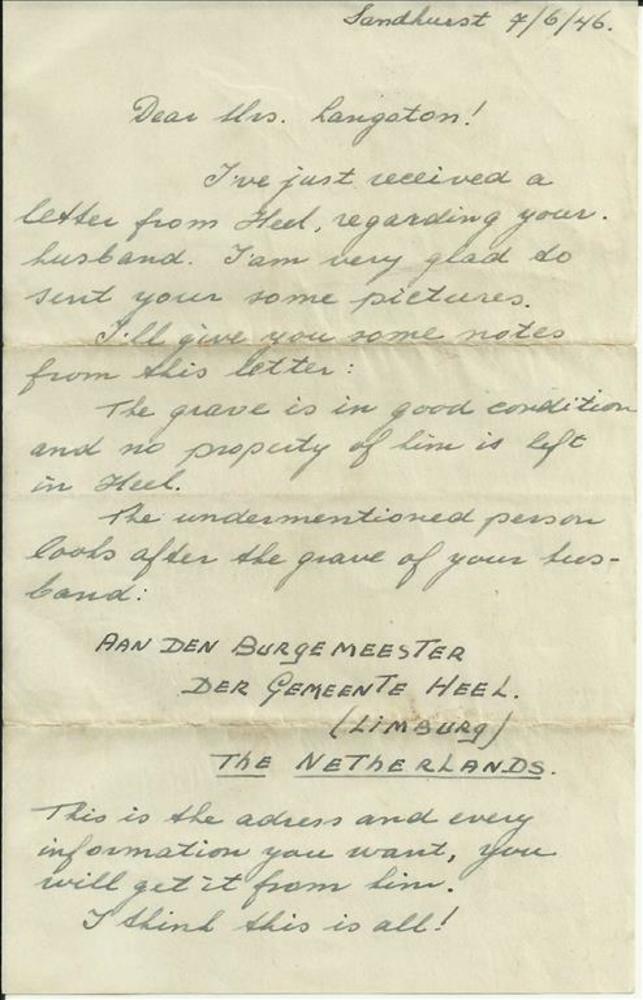 Sandhurst 7/6/46.
Dear Mrs. Langston!
I've just received a
letter from Heel, regarding your.
husband. I am very glad to
sent your some pictures.
I'll give you some notes
from this letter:
The grave is in good condition
and no property of him is left
in Heel.
The undermentioned person
looks after the grave of your hus-
band:
AAN DEN BURGEMEESTER
DER GEMEENTE HEEL.
(LIMBURG)
THE NETHERLANDS.
This is the adress and every
information you want, you
will get it from him.
I think this is all!